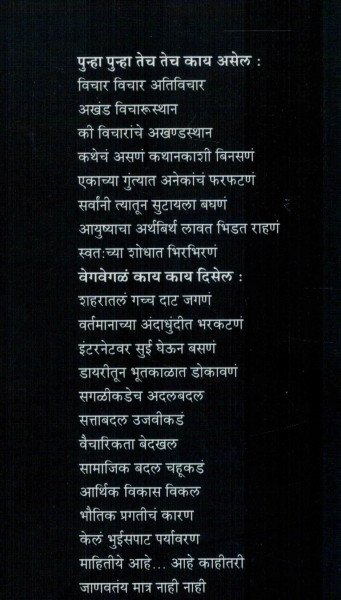 पुन्हा पुन्हा तेच तेच काय असेल :
विचार विचार अतिविचार
अखंड विचारूस्थान
की विचारांचे अखण्डस्थान
कथेचं असणं कथानकाशी बिनसणं
एकाच्या गुंत्यात अनेकांचं फरफटणं
सर्वांनी त्यातून सुटायला बघणं
आयुष्याचा अर्थबिर्थ लावत भिडत राहणं
स्वतःच्या शोधात भिरभिरणं
वेगवेगळं काय काय दिसेल :
शहरातलं गच्च दाट जगणं
वर्तमानाच्या अंदाधुंदीत भरकटणं
इंटरनेटवर सुई घेऊन बसणं
डायरीतून भूतकाळात डोकावणं
सगळीकडेच अदलबदल
सत्ताबदल उजवीकडं
वैचारिकता बेदखल
सामाजिक बदल चहूकडं
आर्थिक विकास विकल
भौतिक प्रगतीचं कारण
केलं भुईसपाट पर्यावरण
माहितीये आहे... आहे काहीतरी
जाणवतंय मात्र नाही नाही